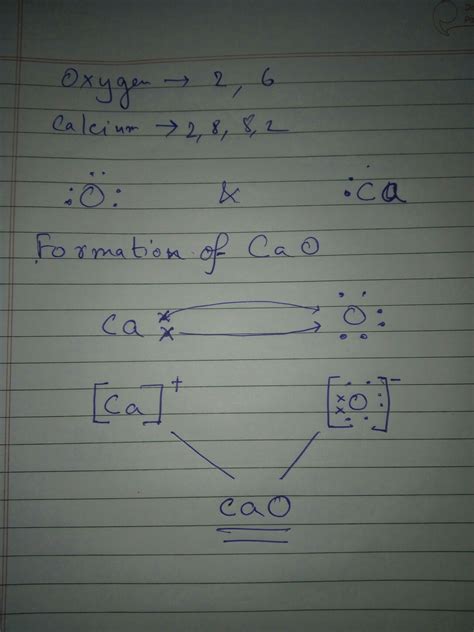 Oxygen → 2, 6
Calcium → 2, 8, 8, 2
:Ö: & ·Ċa
Formation of CaO
Ca ×× :Ö:
[Ca]⁺ [××O:]⁻
CaO